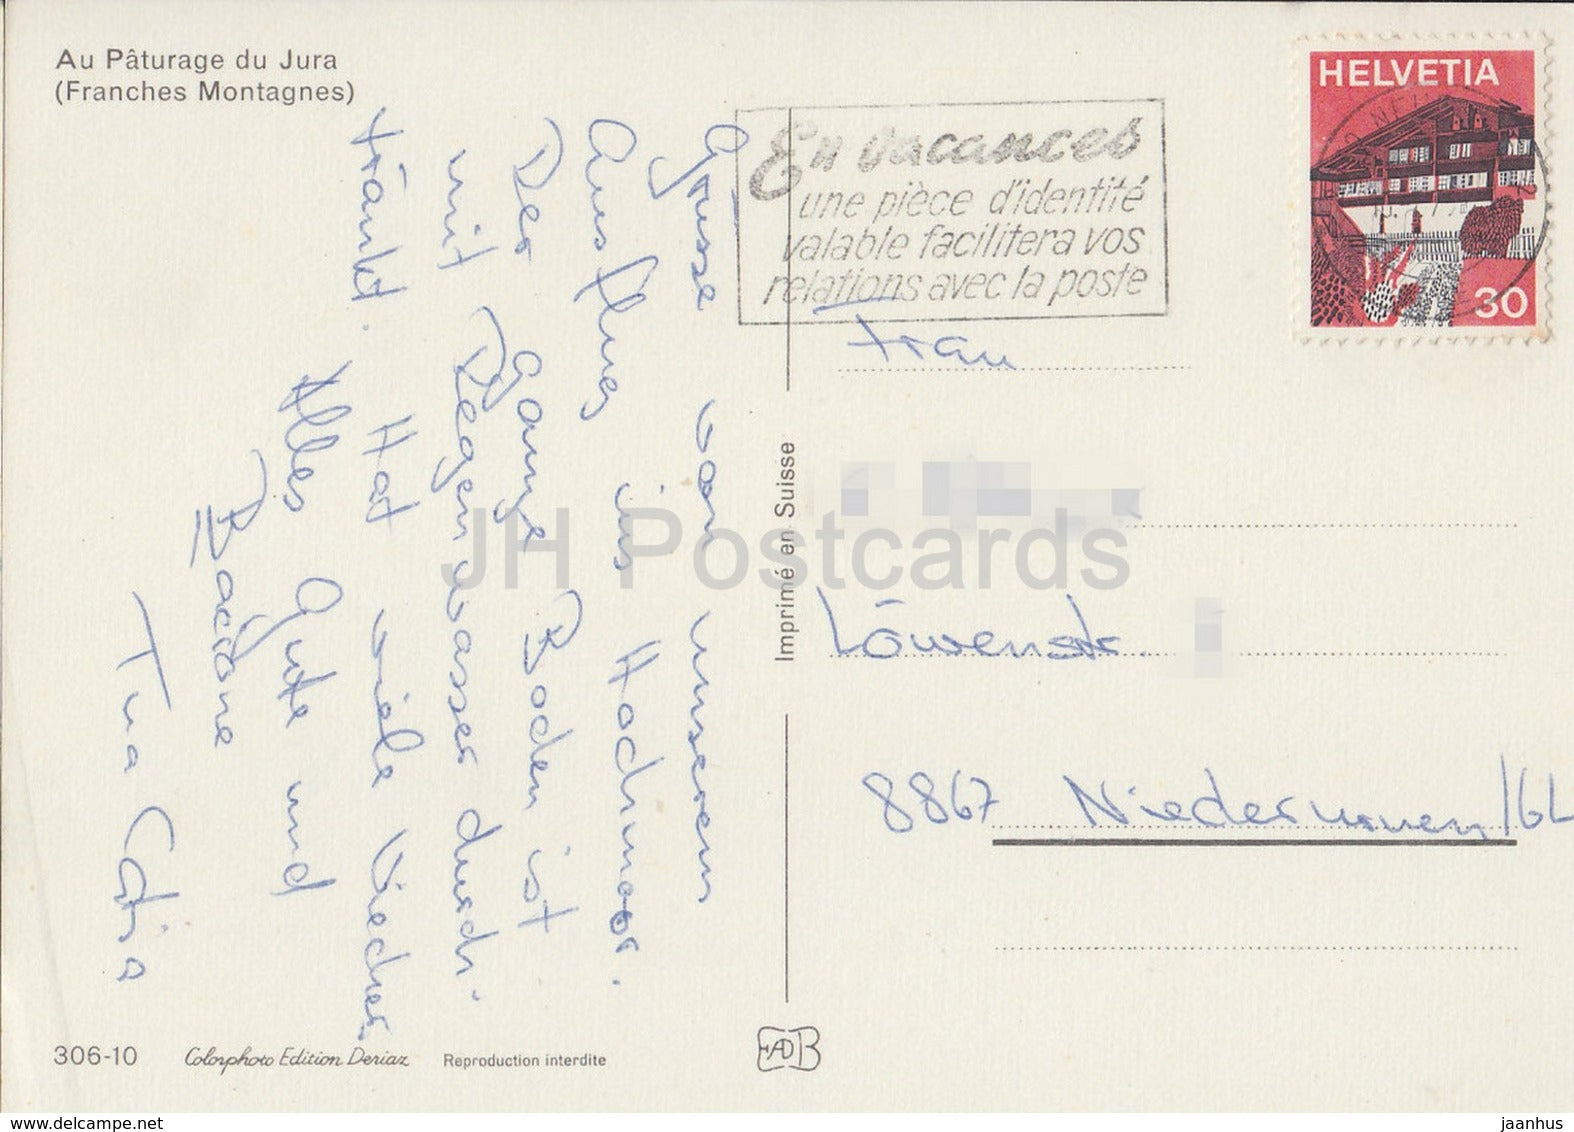 Au Pâturage du Jura
(Franches Montagnes)
HELVETIA
30
En vacances
une pièce d'identité
valable facilitera vos
relations avec la poste
Grüsse von unserem
Ausflug ins Hochmoor.
Der Ganze Boden ist
mit Regenwasser durch-
tränkt. Hat viele Viecher
Alles Gute und
Tua
Frau
Löwenstr.
8867 Niederurnen/GL
Imprimé en Suisse
JH Postcards
306-10
Colorphoto Edition Deriaz
Reproduction interdite
www.delcampe.net
jaanhus